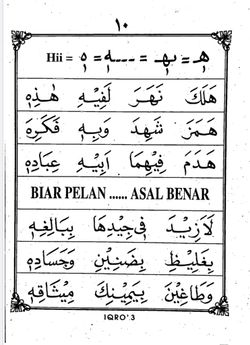 ١٠
Hii = ه = ـه = ـهـ = هـ
هَلَكَ نَهَرَ لَفِيْهِ هٰذِهٖ
هَمَزَ شَهِدَ وَبِهٖ فَكَرِهَ
هَدَمَ فِيْهِمَا اَبِيْهِ عِبَادِهٖ
BIAR PELAN ...... ASAL BENAR
لَازِيْدَ فِيْ جِيْدِهَا بِبَالِغِهٖ
بِغَلِيْظٍ بِضَنِيْنٍ وَجَسَادِهٖ
وَطَاغِيْنَ بِيَمِيْنِكَ مِيْثَاقِهٖ
IQRO'.3